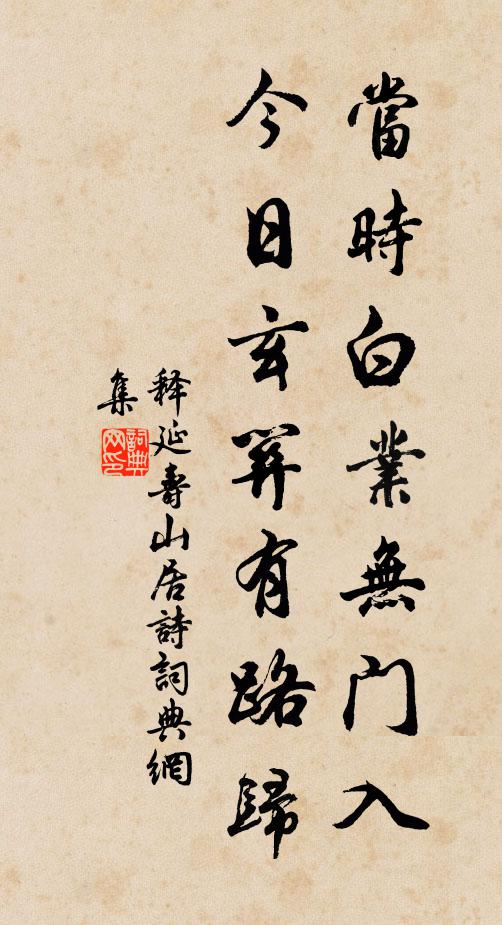 當時白業無門入
今日玄關有路歸
释延壽山居詩詞典網
集
詞典
网印